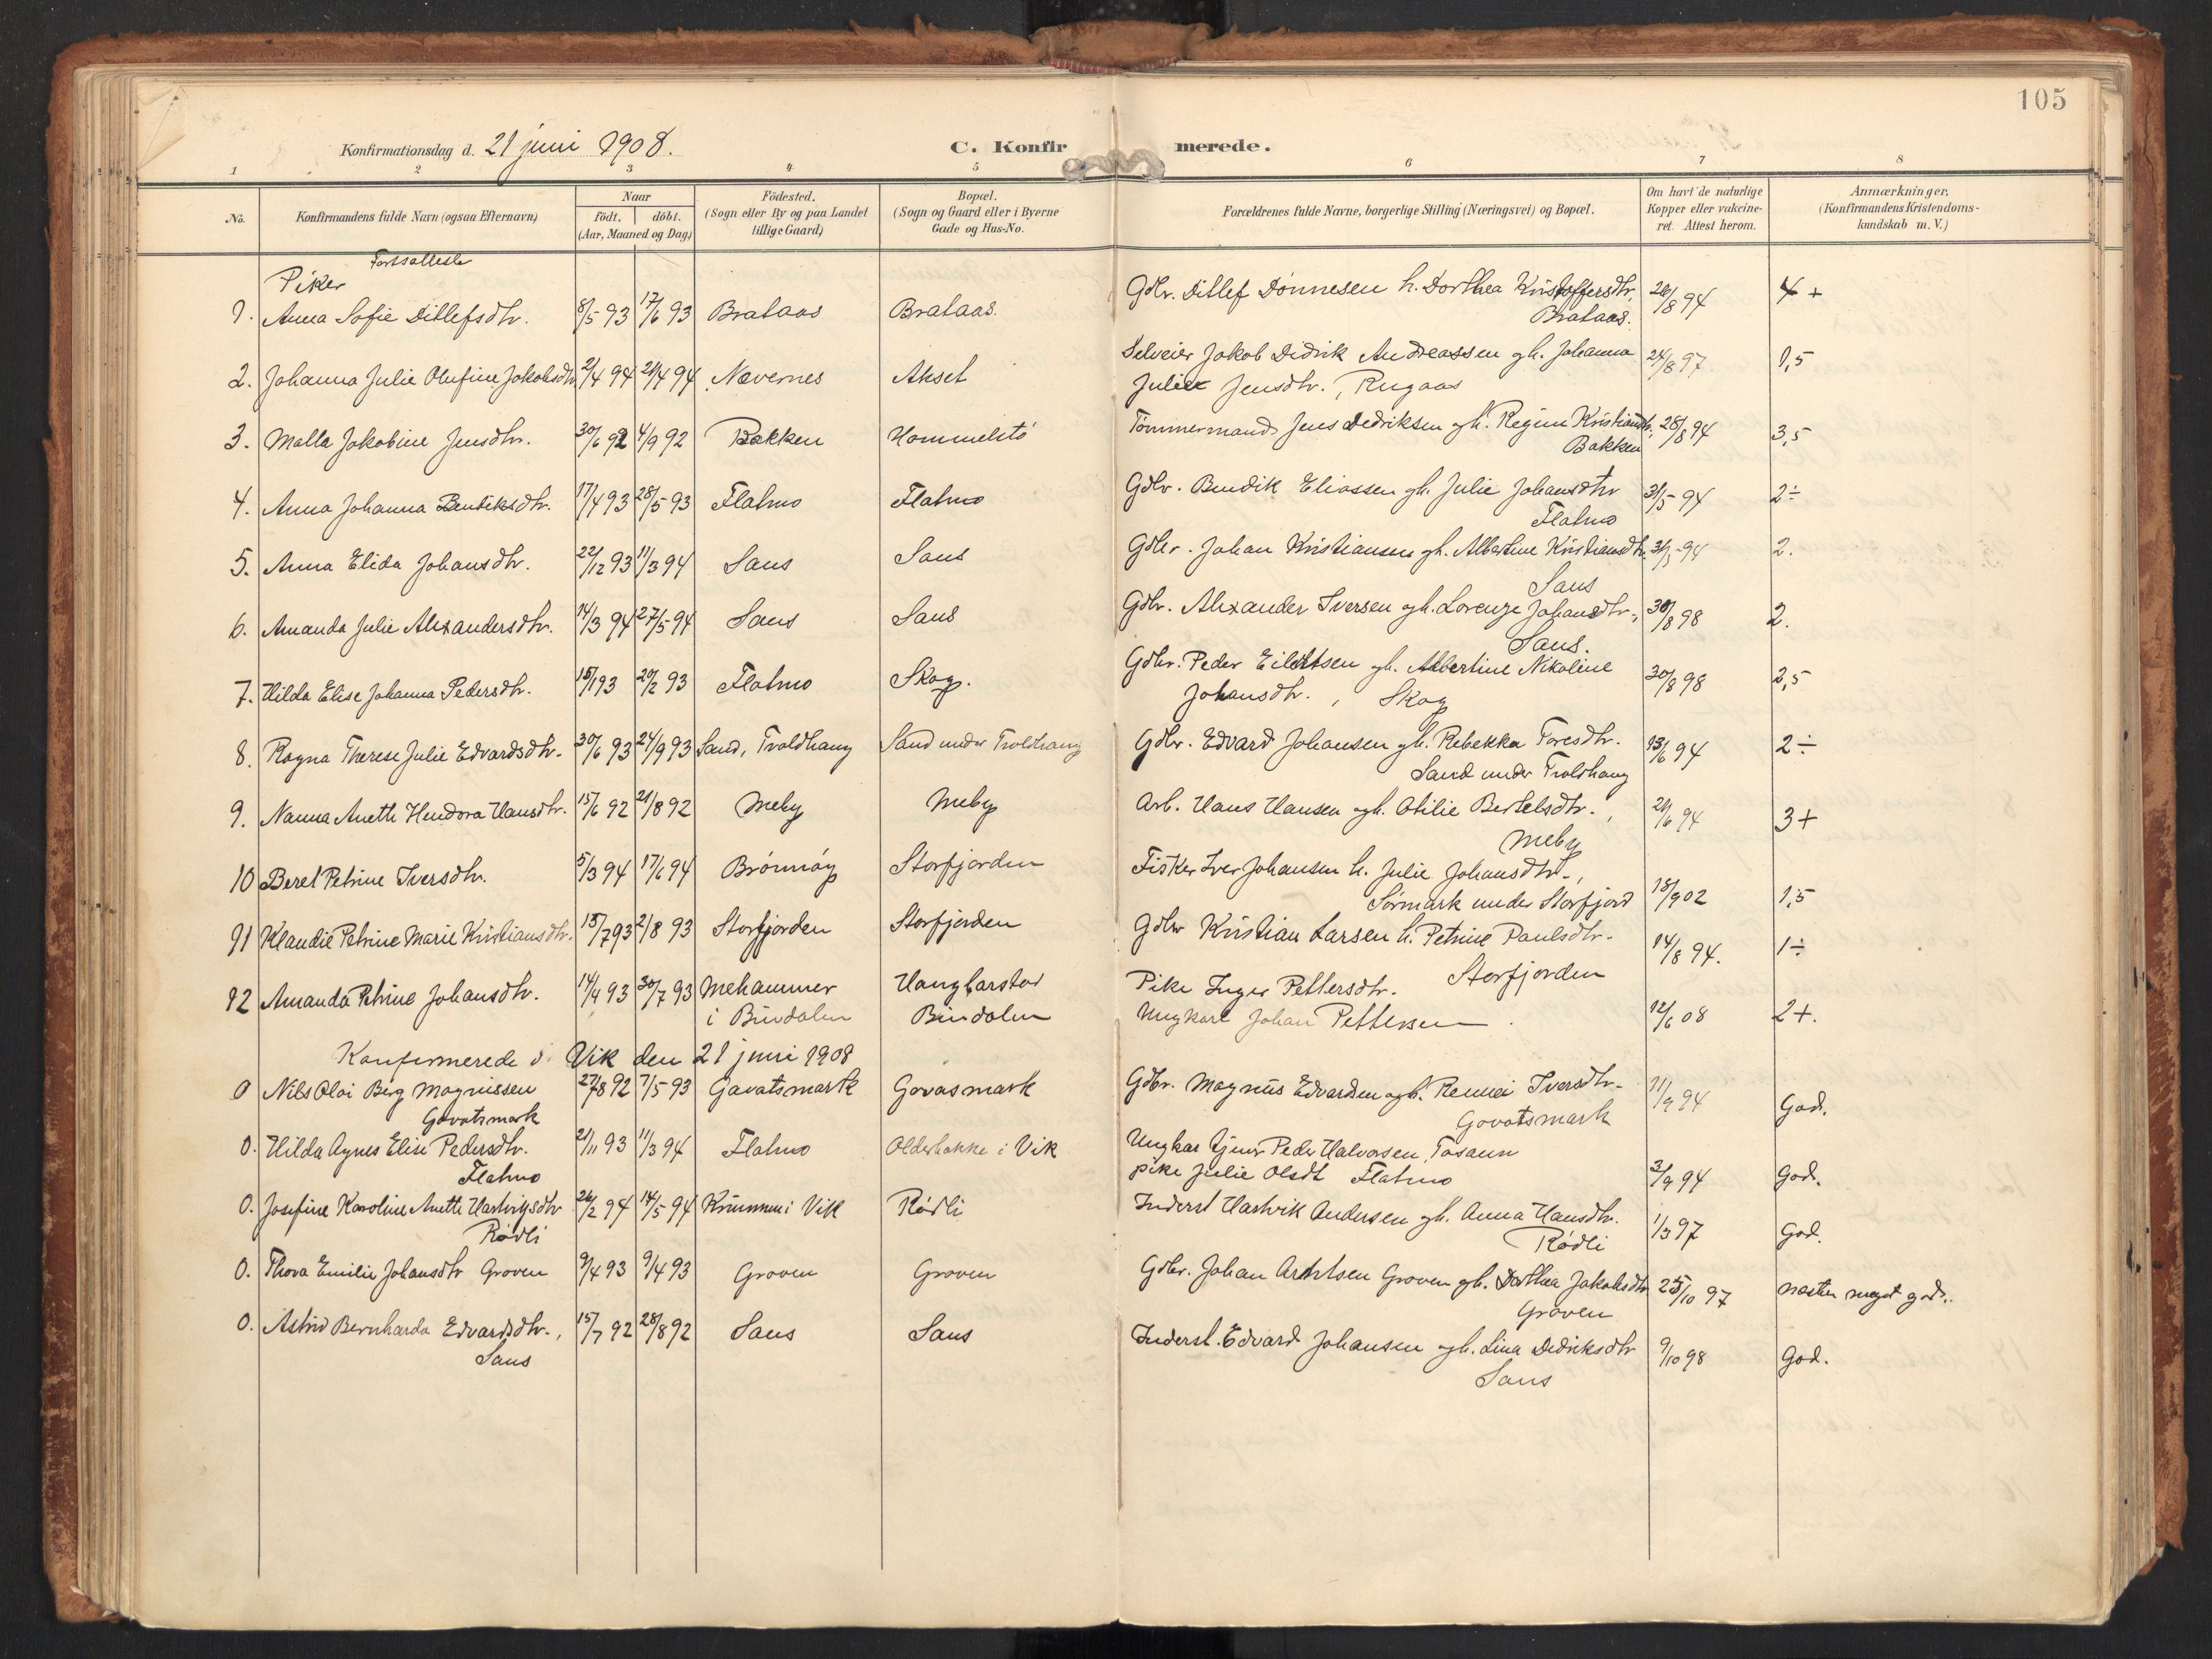 105
Konfirmationsdag d. 21 juni 1908. C. Konfirmerede.
1 2 3 4 5 6 7 8
No. Konfirmandens fulde Navn (ogsaa Efternavn) Naar födt. döbt. (Aar, Maaned og Dag) Födested. (Sogn eller By og paa Landet tillige Gaard) Bopæl. (Sogn og Gaard eller i Byerne Gade og Hus-No. Forældrenes fulde Navne, borgerlige Stilling (Næringsvei) og Bopæl. Om havt de naturlige Kopper eller vakcineret. Attest herom. Anmærkninger. (Konfirmandens Kristendomskundskab m. V.)
Piker
1. Anna Sofie Ditlefsdtr. 8/5 93 17/6 93 Brataas Brataas. Gdbr. Ditlef Dönnesen h. Dorthea Kristoffersdtr, 26/8 94 4+
Brataas.
2. Johanna Julie Olufine Jakobsdtr 2/4 94 29/4 94 Nævernes Akset Selveier Jakob Didrik Andreassen gh. Johanna 24/8 97 1,5
Julie Jensdtr., Rugaas
3. Malla Jakobine Jensdtr. 30/6 92 4/9 92 Bakken Hommelstö Tömmermand Jens Dedriksen gh. Regine Kristiansdtr, 28/8 94 3,5
Bakken
4. Anna Johanna Benteksdtr. 17/4 93 28/5 93 Flatmo Flatmo Gdbr. Bendik Eliassen gh. Julie Johansdtr 31/5 94 2÷
Flatmo
5. Anna Elida Johansdtr. 22/12 93 11/3 94 Saus Saus Gdbr. Johan Kristiansen gh. Albertine Kristiansdtr. 31/5 94 2.
Saus
6. Amanda Julie Alexandersdtr. 14/3 94 27/5 94 Saus Saus Gdbr. Alexander Iversen gh. Lorenze Johansdtr., 30/8 98 2.
Saus.
7. Hilda Elise Johanna Pedersdtr. 15/1 93 20/2 93 Flatmo Skog. Gdbr. Peder Eilertsen gh. Albertine Nikoline 30/8 98 2,5
Johansdtr., Skog
8. Ragna Therese Julie Edvardsdtr. 30/6 93 24/9 93 Sand, Troldhaug Sand under Troldhaug Gdbr. Edvard Johansen gh. Rebekka Toresdtr. 13/6 94 2÷
Sand under Troldhaug
9. Nanna Anette Hendora Hansdtr. 15/6 92 21/8 92 Meby Meby Arb. Hans Hansen gh. Otilie Bertelsdtr., 21/6 94 3+
Meby
10 Beret Petrine Iversdtr. 5/3 94 17/6 94 Brönnöy Storfjorden Fisker Iver Johansen h. Julie Johansdtr., 18/9 02 1,5
Sörmark under Storfjord
11 Klaudie Petrine Marie Kristiansdtr. 15/7 93 2/8 93 Storfjorden Storfjorden Gdbr Kristian Larsen h. Petrine Paulsdtr. 14/8 94. 1÷
Storfjorden
12 Amanda Petrine Johansdtr. 14/4 93 30/7 93 Mehammer Pike Inger Pettersdtr.
i Bindalen Bindalen Ungkarl Johan Pettersen. 12/6 08 2+.
Konfirmerede i Vik den 21 juni 1908
0 Nils Olai Berg Magnussen 27/8 92 7/5 93 Gavatsmark Govasmark Gdbr. Magnus Edvardsen gh. Rennei Iversdtr. 11/9 94 God.
Govatsmark Govatsmark
0. Hilda Agnes Elise Pedersdtr. 21/11 93 11/3 94 Flatmo Olderbakke i Vik Ungkar Peder Halvorsen, Tosaun
Flatmo pike Julie Olsdt Flatmo 3/9 94 God.
0. Josefine Karoline Anette Hartvigsdtr 26/2 94 14/5 94 i Vik Rödli Inderst Hartvik Andersen gh. Anna Hansdtr. 1/3 97 God.
Rödli Rödli
0. Thora Emilie Johansdtr Groven 9/4 93 9/4 93 Groven Groven Gdbr. Johan Arntsen Groven gh. Dorthea Jakobsdtr 25/10 97 næsten meget god.
Groven
0. Astrid Bernharda Edvardsdtr., 15/7 92 28/8 92 Saus Saus Inderst. Edvard Johansen gh. Lina Dedriksdtr 9/10 98 God.
Saus Saus